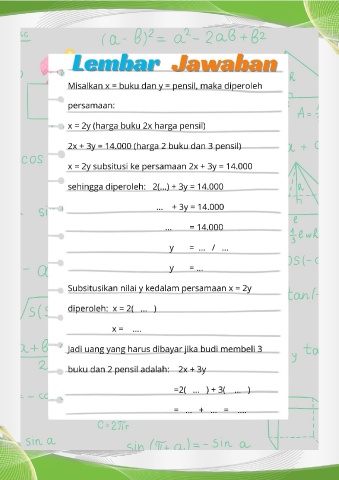 (a - b)² = a² - 2ab + b²
Lembar Jawaban
Misalkan x = buku dan y = pensil, maka diperoleh
persamaan:
x = 2y (harga buku 2x harga pensil)
2x + 3y = 14.000 (harga 2 buku dan 3 pensil)
x = 2y subsitusi ke persamaan 2x + 3y = 14.000
sehingga diperoleh: 2(...) + 3y = 14.000
... + 3y = 14.000
... = 14.000
y = ... / ...
y = ...
Subsitusikan nilai y kedalam persamaan x = 2y
diperoleh: x = 2( ... )
x = ....
Jadi uang yang harus dibayar jika budi membeli 3
buku dan 2 pensil adalah: 2x + 3y
=2( ... ) + 3( ... )
= ... + ... = ....
C=2πr
sin a
sin (π+a) = - sin a